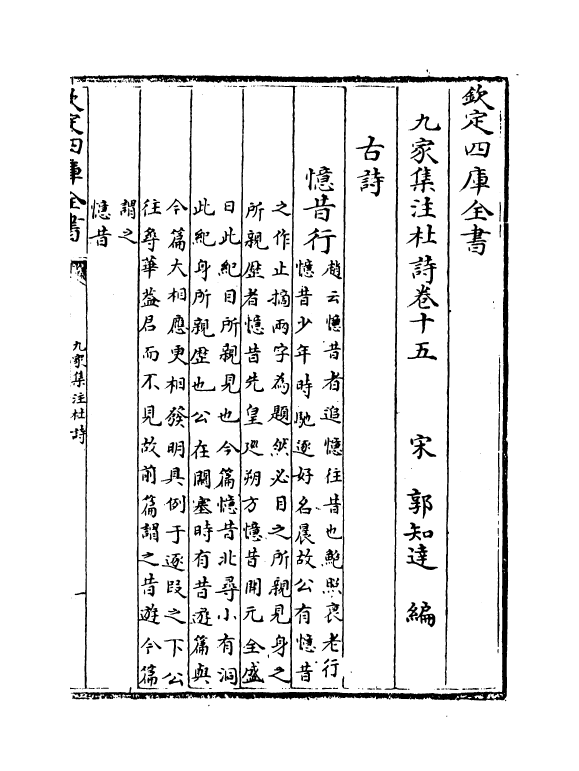 欽定四庫全書
九家集注杜詩卷十五
宋 郭知達 編
古詩
憶昔行
趙云憶昔者追憶往昔也鮑照哀老行
憶昔少年時馳逐好名晨故公有憶昔
之作止摘兩字為題然必目之所親見身之
所親歴者憶昔先皇廵朔方憶昔開元全盛
日此紀目所親見也今篇憶昔北尋小有洞
此紀身所親歴也公在關塞時有昔遊篇與
今篇大相應更相發明具例于逐段之下公
往尋華葢君而不見故前篇謂之昔遊今篇
謂之
憶昔
欽定四庫全書
九家集注杜詩
一